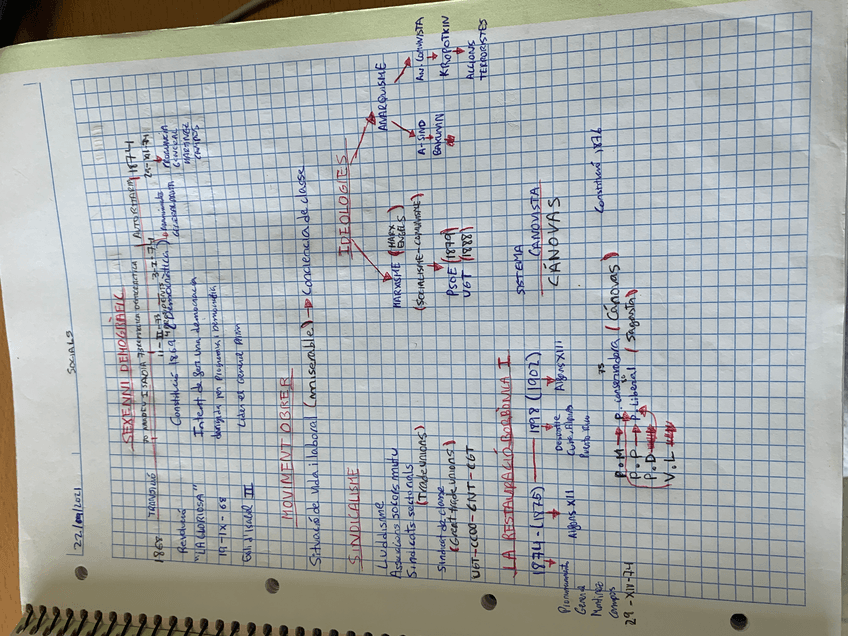 22/09/2021
SOCIALS
SEXENNI DEMOGRÀFIC
1868 TRANSICIÓ 70 AMADEU I SABOIA 73 REPÚBLICA DEMOCRÀTICA AUTORITÀRIA 1874
11-II-73 3-I-74 29-XII-74
Revolució
"LA GLORIOSA"
19-IX-68
Exili d'Isabel II
Constitució 1869 (Democràtica)
Intent de fer una democràcia
dirigida per Progressista i Demòcrata
Líder el General Prim
GENERAL
MARTÍNEZ
CAMPOS
MOVIMENT OBRER
Situació de vida i laboral (miserable) → Conciència de classe
SINDICALISME
Luddisme
Associacions socors mutu
Sindicats sectorials
(Trade unions)
Sindicat de classe
(Great trade unions)
UGT-CCOO-CNT-CGT
IDEOLOGIES
MARXISME (MARX
ENGELS)
(SOCIALISME-COMUNISME)
PSOE (1879)
UGT (1888)
ANARQUISME
A-SIND
BAKUNIN
AN. COMUNISTA
KROPOTKIN
ACCIONS
TERRORISTES
LA RESTAURACIÓ BORBÒNICA I
1874-(1875) 1898 (1902)
Pronunciament
General
Martínez
Campos
29-XII-74
Alfons XII
Desastre
Cuba, Filipines
Puerto Rico
Alfons XIII
SISTEMA
CANOVISTA
CÁNOVAS
P.M → P. conservadora (Cánovas)
P.P → P. Liberal (Sagasta)
P.D
V.L
Constitució 1876